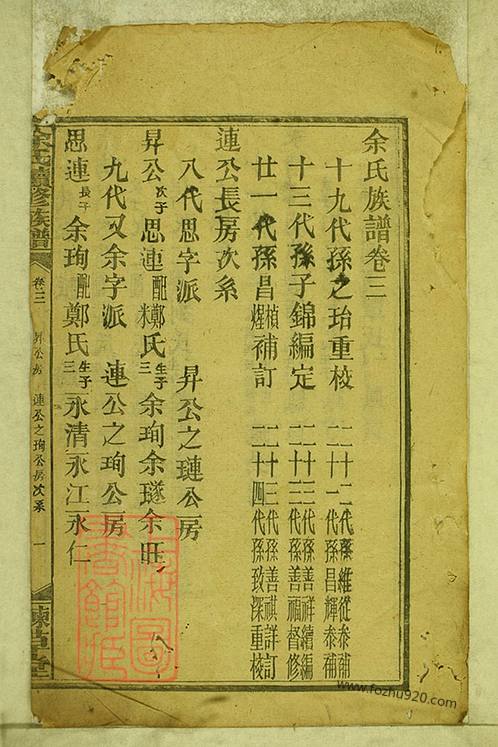 余氏族譜卷三
十九代孫之珆重校
二十二代孫維從泰補
二十一代孫昌輝泰補
十三代孫子錦編定
二十三代孫善祥續編
二十二代孫善福督修
廿一代孫昌禎煋補訂
二十三代孫善祺詳訂
二十四代孫致深重校
連公長房次系
八代思字派 昇公之璉公房
昇公次子思連配鄭氏生子三余珣余璲余旺
九代又余字派 連公之珣公房
思連長子余珣配鄭氏生子三永清永江永仁
余氏續修族譜
卷三
昇公房 連公之珣公房次系 一
上海圖書館
www.fozhu920.com